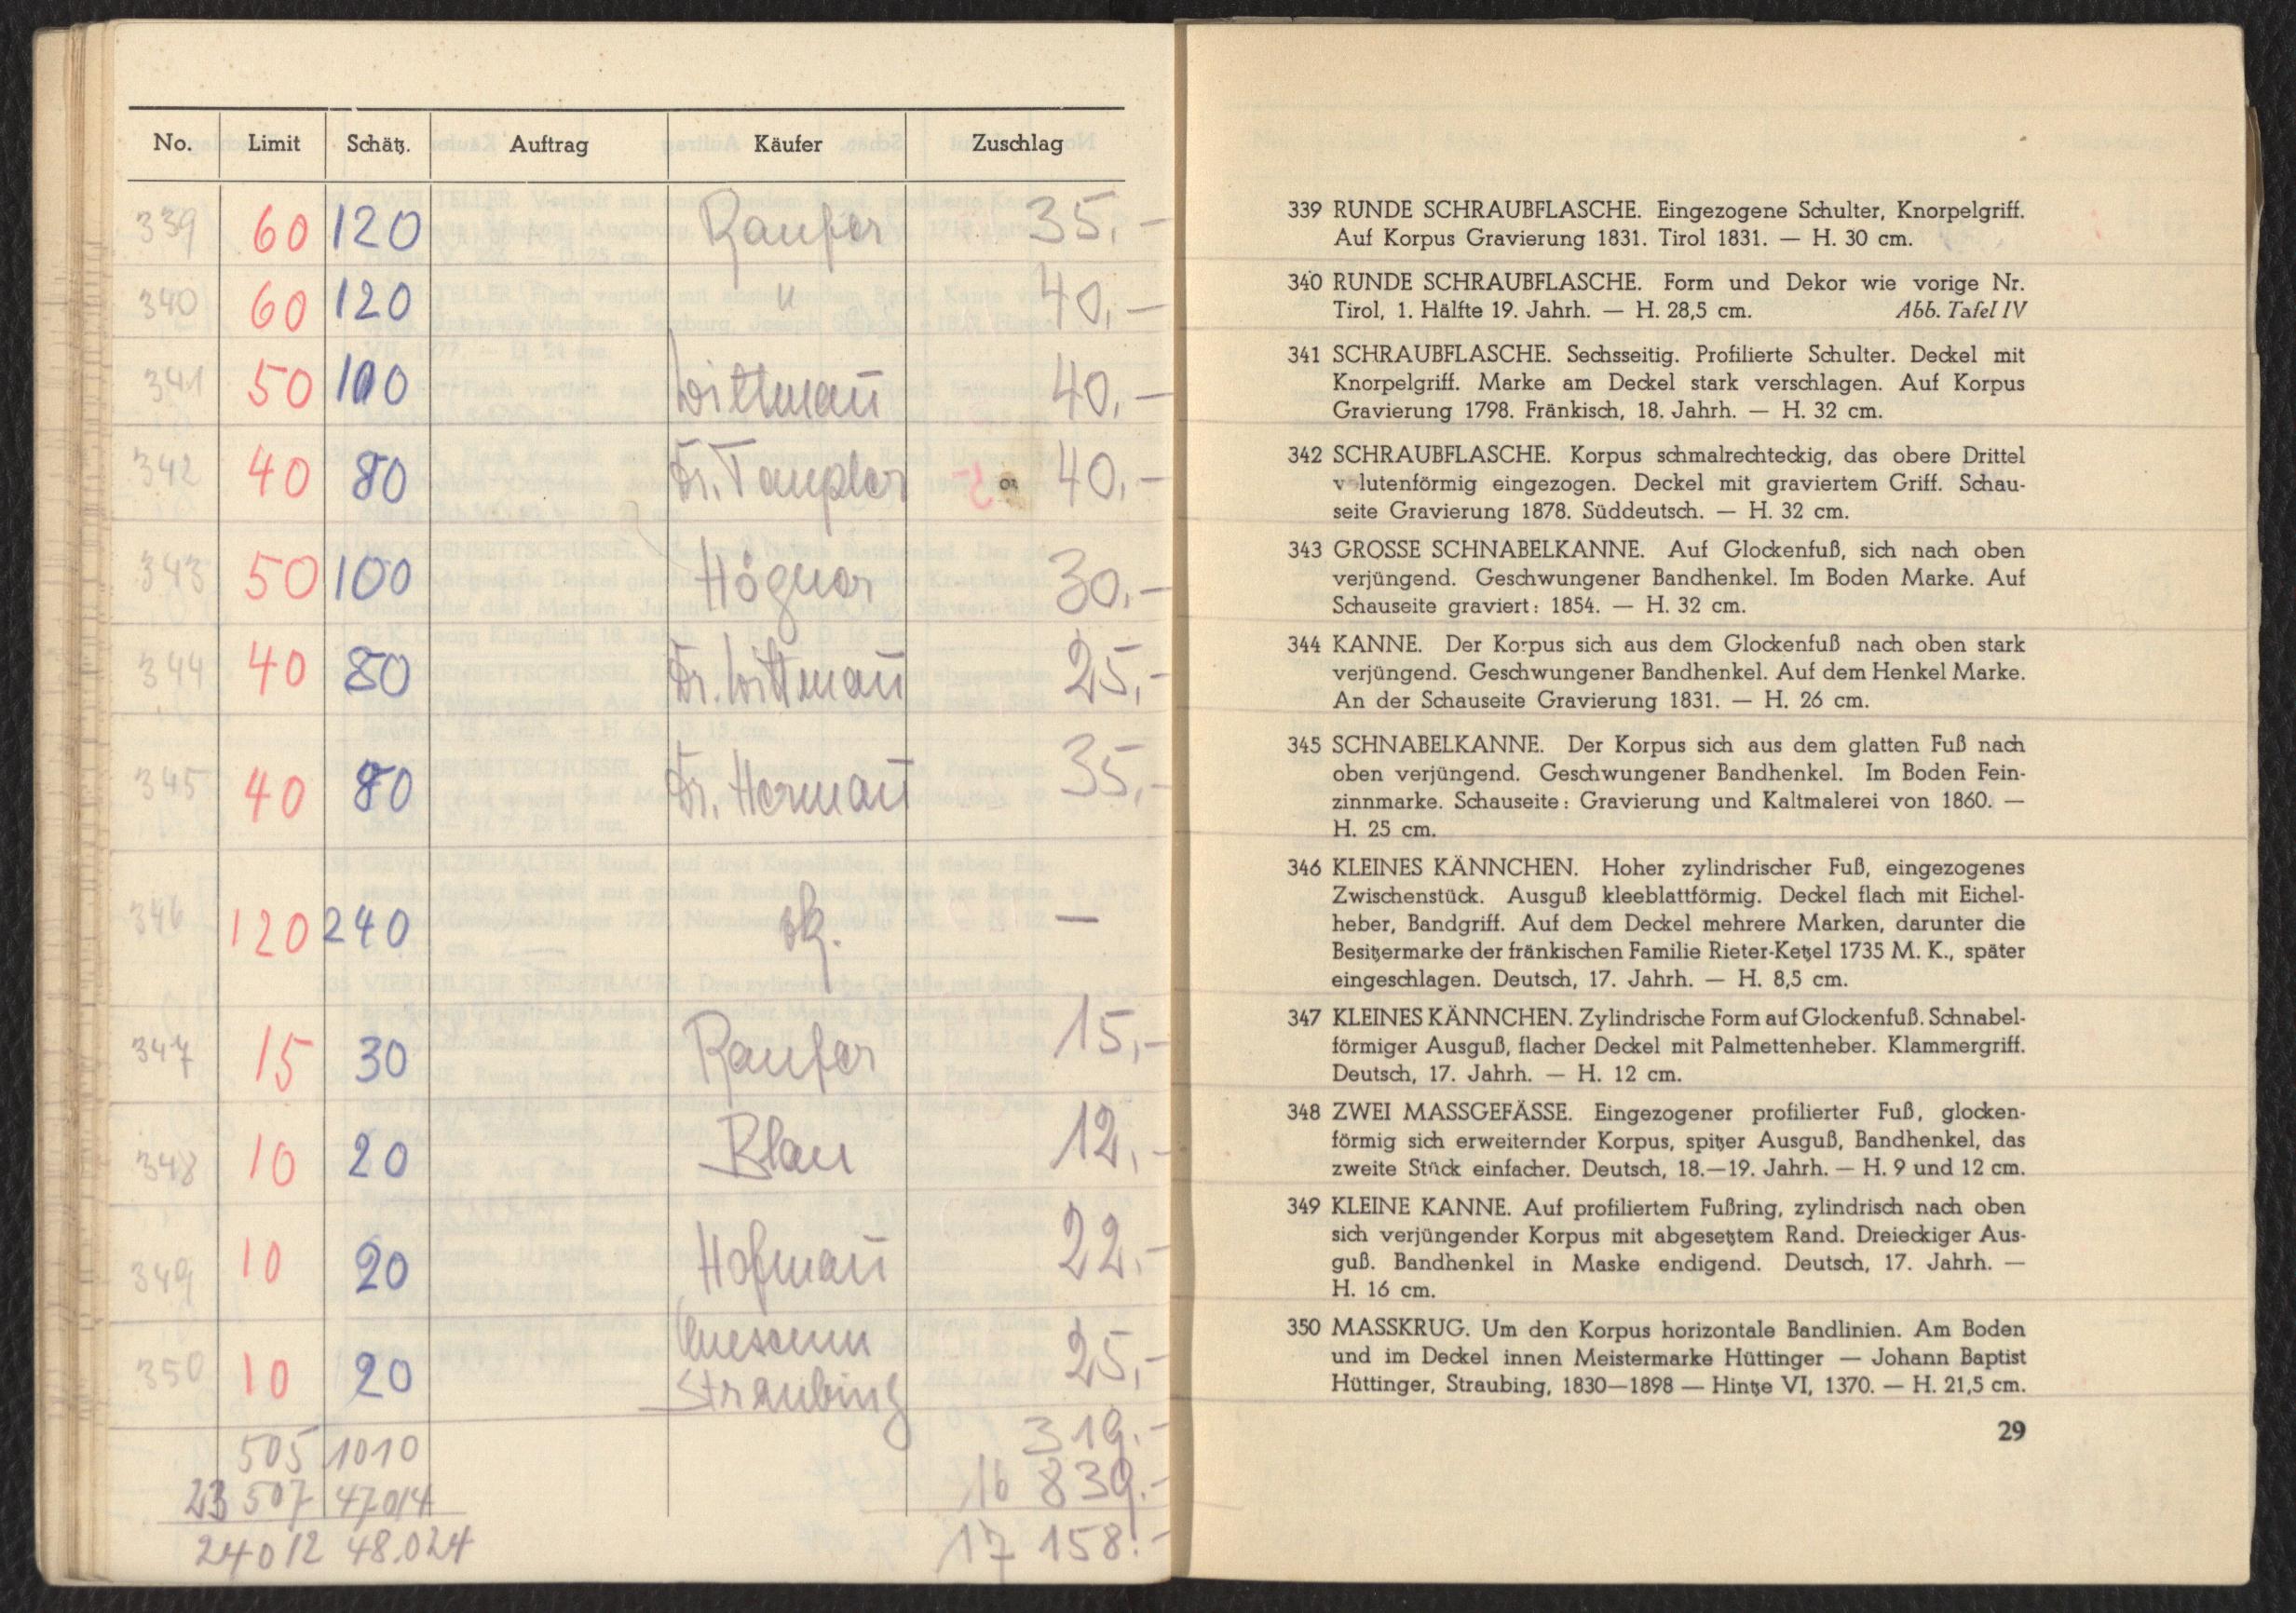 No. Limit Schätz. Auftrag Käufer Zuschlag
339 60 120 Raufer 35,-
340 60 120 " 40,-
341 50 100 Wittmann̄ 40,-
342 40 80 Dr. 40,-
343 50 100 Högner 30,-
344 40 80 Dr. Wittmañ 25,-
345 40 80 Dr. Hermañ 35,-
346 120 240 —
347 15 30 Raufer 15,-
348 10 20 Blau 12,-
349 10 20 Hofmañ 22,-
350 10 20 Museum 25,-
Straubing
505 1010 319.-
23 507 47014 16 839.-
24012 48.024 17 158.-
339 RUNDE SCHRAUBFLASCHE. Eingezogene Schulter, Knorpelgriff.
Auf Korpus Gravierung 1831. Tirol 1831. — H. 30 cm.
340 RUNDE SCHRAUBFLASCHE. Form und Dekor wie vorige Nr.
Tirol, 1. Hälfte 19. Jahrh. — H. 28,5 cm. Abb. Tafel IV
341 SCHRAUBFLASCHE. Sechsseitig. Profilierte Schulter. Deckel mit
Knorpelgriff. Marke am Deckel stark verschlagen. Auf Korpus
Gravierung 1798. Fränkisch, 18. Jahrh. — H. 32 cm.
342 SCHRAUBFLASCHE. Korpus schmalrechteckig, das obere Drittel
volutenförmig eingezogen. Deckel mit graviertem Griff. Schau-
seite Gravierung 1878. Süddeutsch. — H. 32 cm.
343 GROSSE SCHNABELKANNE. Auf Glockenfuß, sich nach oben
verjüngend. Geschwungener Bandhenkel. Im Boden Marke. Auf
Schauseite graviert: 1854. — H. 32 cm.
344 KANNE. Der Korpus sich aus dem Glockenfuß nach oben stark
verjüngend. Geschwungener Bandhenkel. Auf dem Henkel Marke.
An der Schauseite Gravierung 1831. — H. 26 cm.
345 SCHNABELKANNE. Der Korpus sich aus dem glatten Fuß nach
oben verjüngend. Geschwungener Bandhenkel. Im Boden Fein-
zinnmarke. Schauseite: Gravierung und Kaltmalerei von 1860. —
H. 25 cm.
346 KLEINES KÄNNCHEN. Hoher zylindrischer Fuß, eingezogenes
Zwischenstück. Ausguß kleeblattförmig. Deckel flach mit Eichel-
heber, Bandgriff. Auf dem Deckel mehrere Marken, darunter die
Besitzermarke der fränkischen Familie Rieter-Ketzel 1735 M. K., später
eingeschlagen. Deutsch, 17. Jahrh. — H. 8,5 cm.
347 KLEINES KÄNNCHEN. Zylindrische Form auf Glockenfuß. Schnabel-
förmiger Ausguß, flacher Deckel mit Palmettenheber. Klammergriff.
Deutsch, 17. Jahrh. — H. 12 cm.
348 ZWEI MASSGEFÄSSE. Eingezogener profilierter Fuß, glocken-
förmig sich erweiternder Korpus, spitzer Ausguß, Bandhenkel, das
zweite Stück einfacher. Deutsch, 18.—19. Jahrh. — H. 9 und 12 cm.
349 KLEINE KANNE. Auf profiliertem Fußring, zylindrisch nach oben
sich verjüngender Korpus mit abgesetztem Rand. Dreieckiger Aus-
guß. Bandhenkel in Maske endigend. Deutsch, 17. Jahrh. —
H. 16 cm.
350 MASSKRUG. Um den Korpus horizontale Bandlinien. Am Boden
und im Deckel innen Meistermarke Hüttinger — Johann Baptist
Hüttinger, Straubing, 1830—1898 — Hintze VI, 1370. — H. 21,5 cm.
29